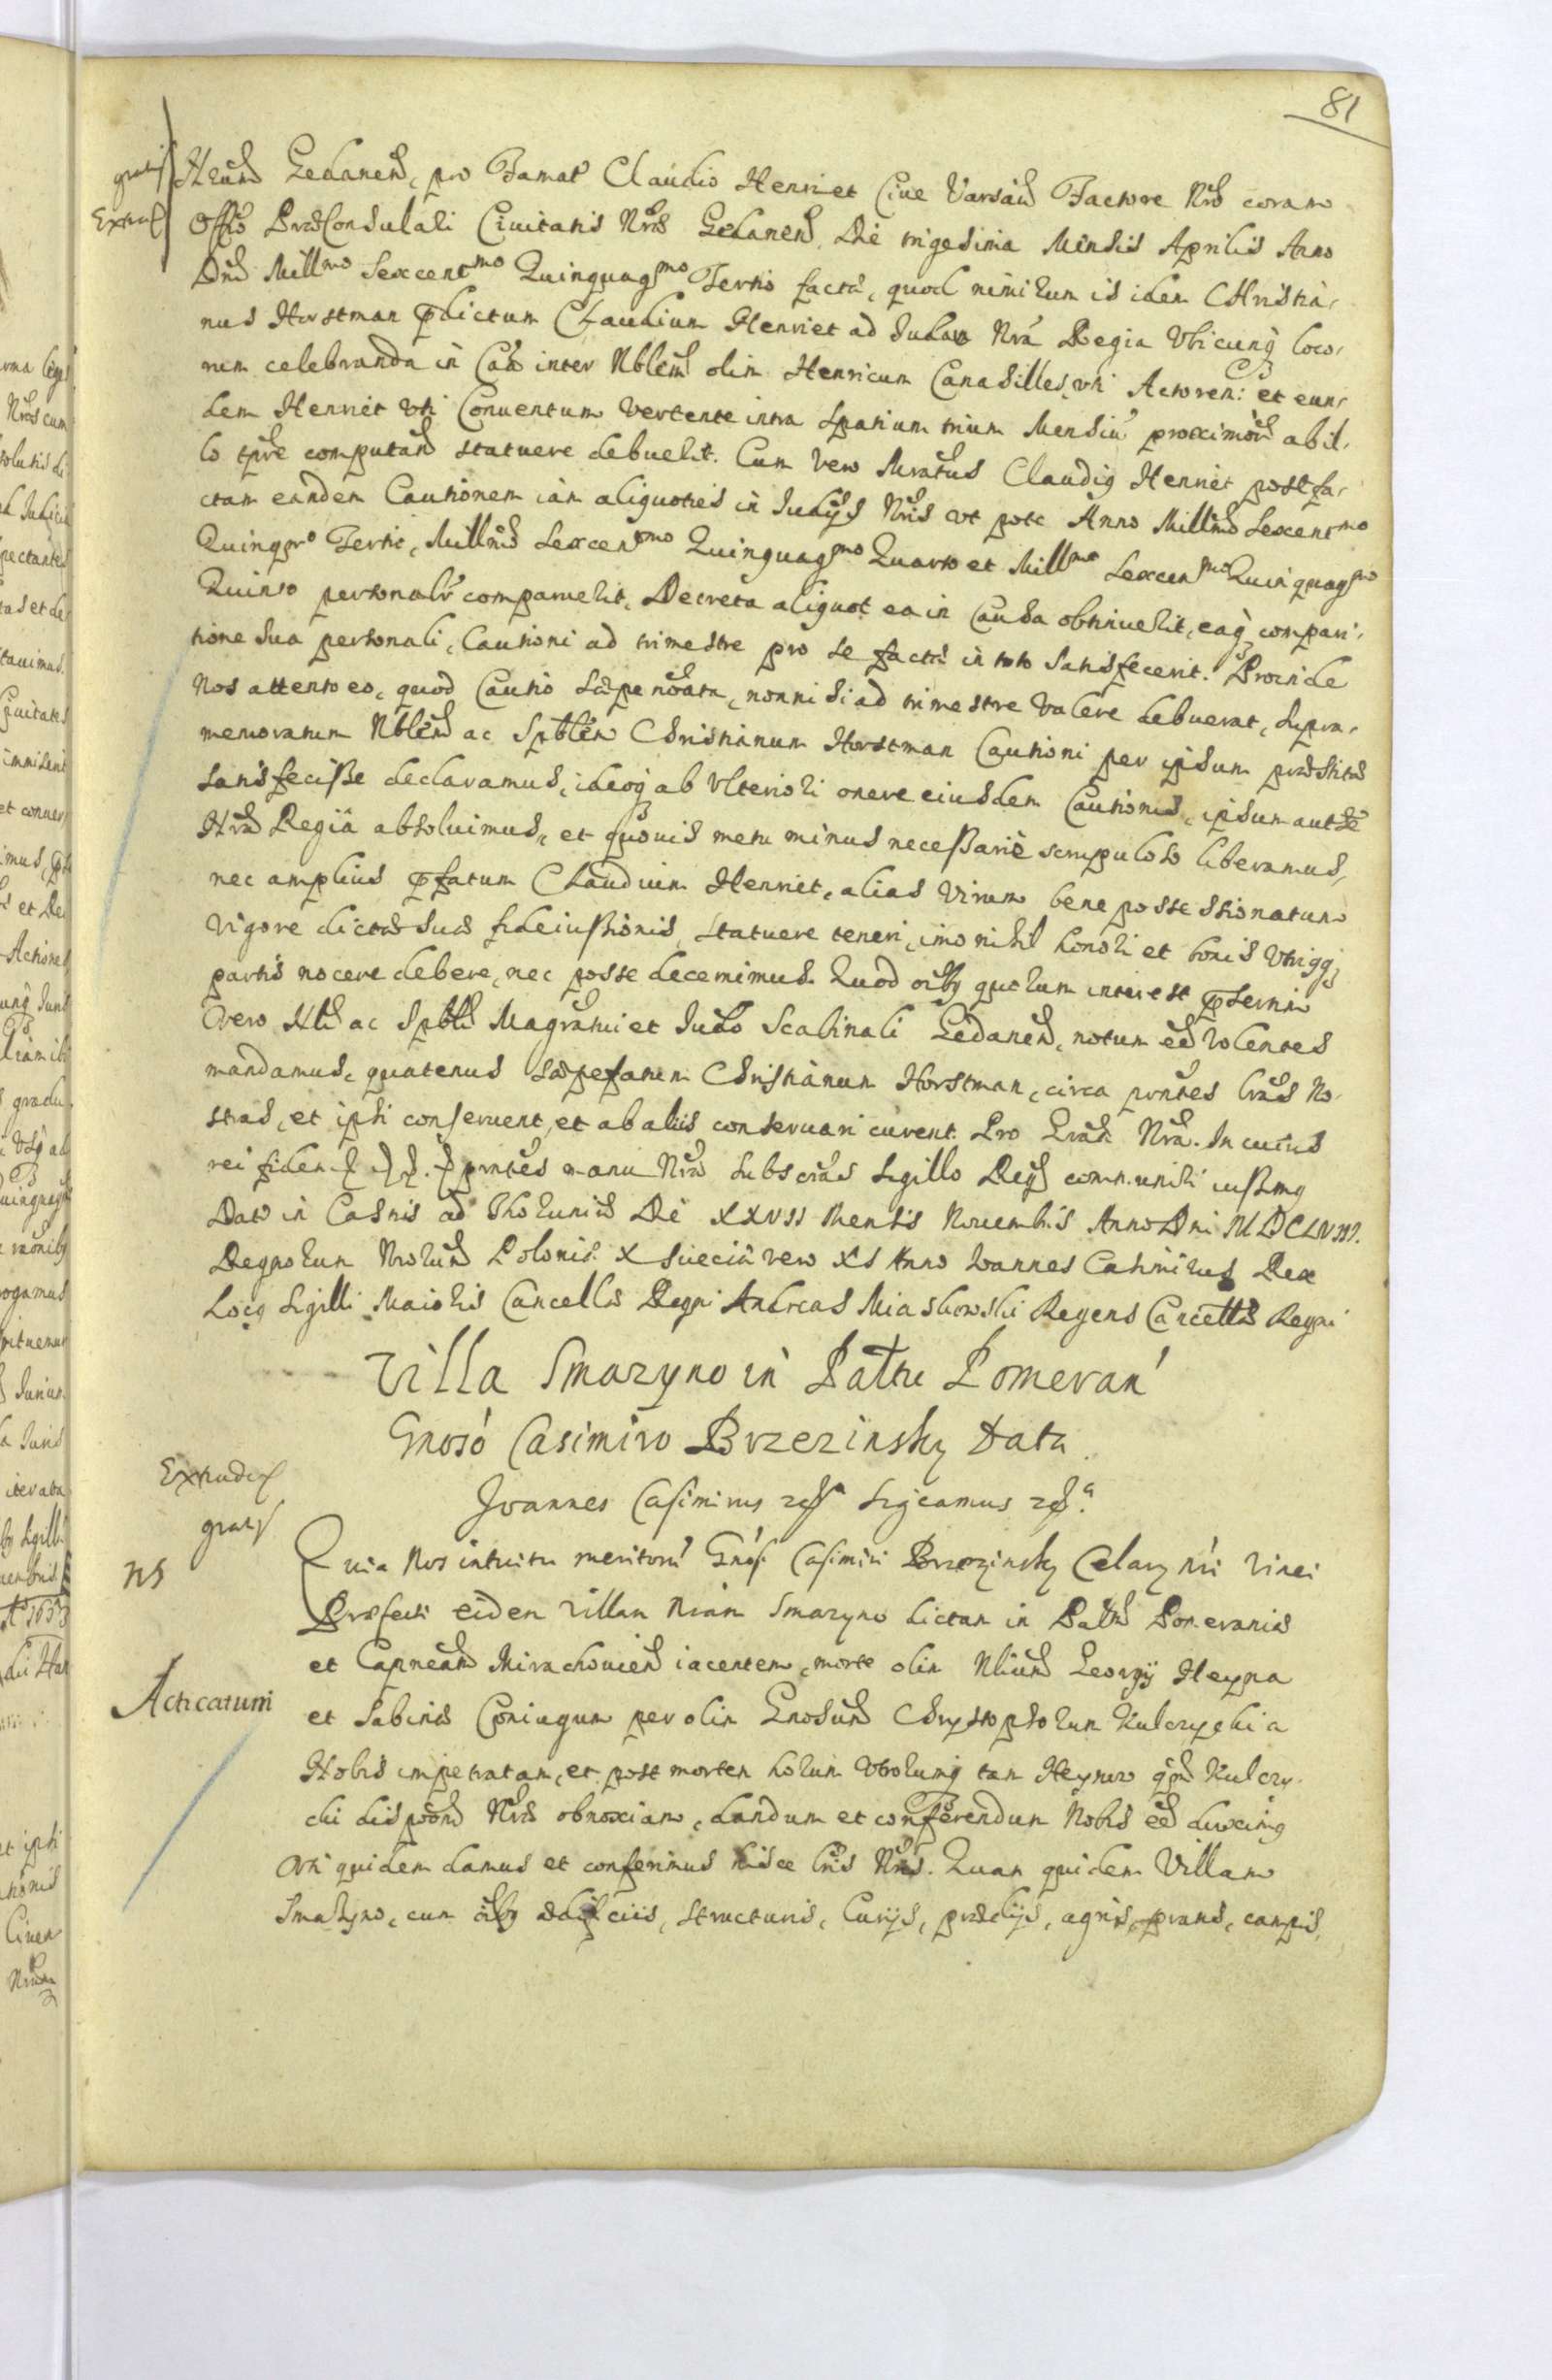 81
gratis
Extrad
Nrum Gedanen, pro Famat Claudio Henriet Ciue Varsauien Factore Nro coram
Offo PraeConsulari Ciuitatis Nrae Gedanen. Die trigesima Mensis Aprilis Anno
Dni Millmo Sexcentmo Quinquagmo Tertio facta, quod nimirum is idem Christia,
nus Horstman pdictum Claudium Henriet ad Iudicia Nra Regia Vbicunq loco,
rum celebranda in Causa inter Nblem olim Henricum Canasilles, vti Actorem: et eun,
dem Henriet vti Conuentum vertente intra spatium trium Mensiu proximoru ab il,
lo tpre computan statuere debuerit. Cum vero Mratus Claudiq Henriet post fa,
ctam eandem Cautionem iam aliquoties in Iudijs Nris vt pote Anno Millmo Sexcentmo
Quinqmo Tertio, Millmo Sexcenmo Quinquagmo Quarto et Millmo Sexcenmo Quinquagmo
Quinto personalr comparuerit, Decreta aliquot ea in Causa obtinuerit, eaq compari,
tione sua personali, Cautioni ad trimestre pro se facta in toto satisfecerit. Proinde
Nos attento eo, quod Cautio saepe noata, nonnisi ad trimestre valere debuerat, supra,
memoratum Nblem ac Spblem Christianum Horstman Cautioni per ipsum praestitae
satisfecisse declaramus, ideoq ab vlteriori onere eiusdem Cautionis, ipsum autte
Nra Regia absoluimus, et quouis metu minus necessarie scrupuloso liberamus,
nec amplius pfatum Claudium Henriet, alias virum bene possessionatum
vigore dictae suae fideiussionis, statuere teneri, imo nihil honori et bonis vtriqq
partis nocere debere, nec posse decernimus. Quod oibq quorum interest psertim
vero Nbli ac Spbli Magratui et Iudo Scabinali Gedanen, notum ee volentes
mandamus, quatenus saepefatum Christianum Horstman, circa pntes lras No,
stras, et ipsi conseruent, et ab aliis conseruari curent. Pro Gra Nra. In cuius
rei fidem pntes manu Nra subscras Sigillo Regni communiri iussimq
Dat in Castris ad Thoruniu Die XXVII Mensis Nouembris Anno Dni MDCLVIII.
Regnorum Nrorum Poloniae X Sueciae vero XI Anno Ioannes Casimirus Rex
Locq Sigilli Maioris Cancellae Regni Andreas Miaskowski Regens Cancellae Regni
Villa Smazyno in Pattu Pomeran
Gnoso Casimiro Brzezinsky Datu
Extradit
gratis
Joannes Casimirus Sigcamus
NS
Quia Nos intuitu meritoru Gnosi Casimiri Brzezinsky Celary nri Vinei
Praefecti eidem Villam Nram Smazyno dictam in Pattu Pomeraniae
et Capneatu Mirachouien iacentem, morte olim Nbium Georgij Heyna
Acticatum
et Sabinae Coniugum per olim Gnosum Chrystophorum Kulczycki a
Nobis impetratam, et post mortem horum vtrorumq tam Heynow qm Kulczy
cki disposni Nrae obnoxiam, dandum et conferendum Nobis ee duximq
Vti quidem damus et conferimus hisce lris Nris. Quam quidem Villam
Smazyno, cum oibq aedificiis, structuris, Curijs, praedijs, agris, pratis, campis,